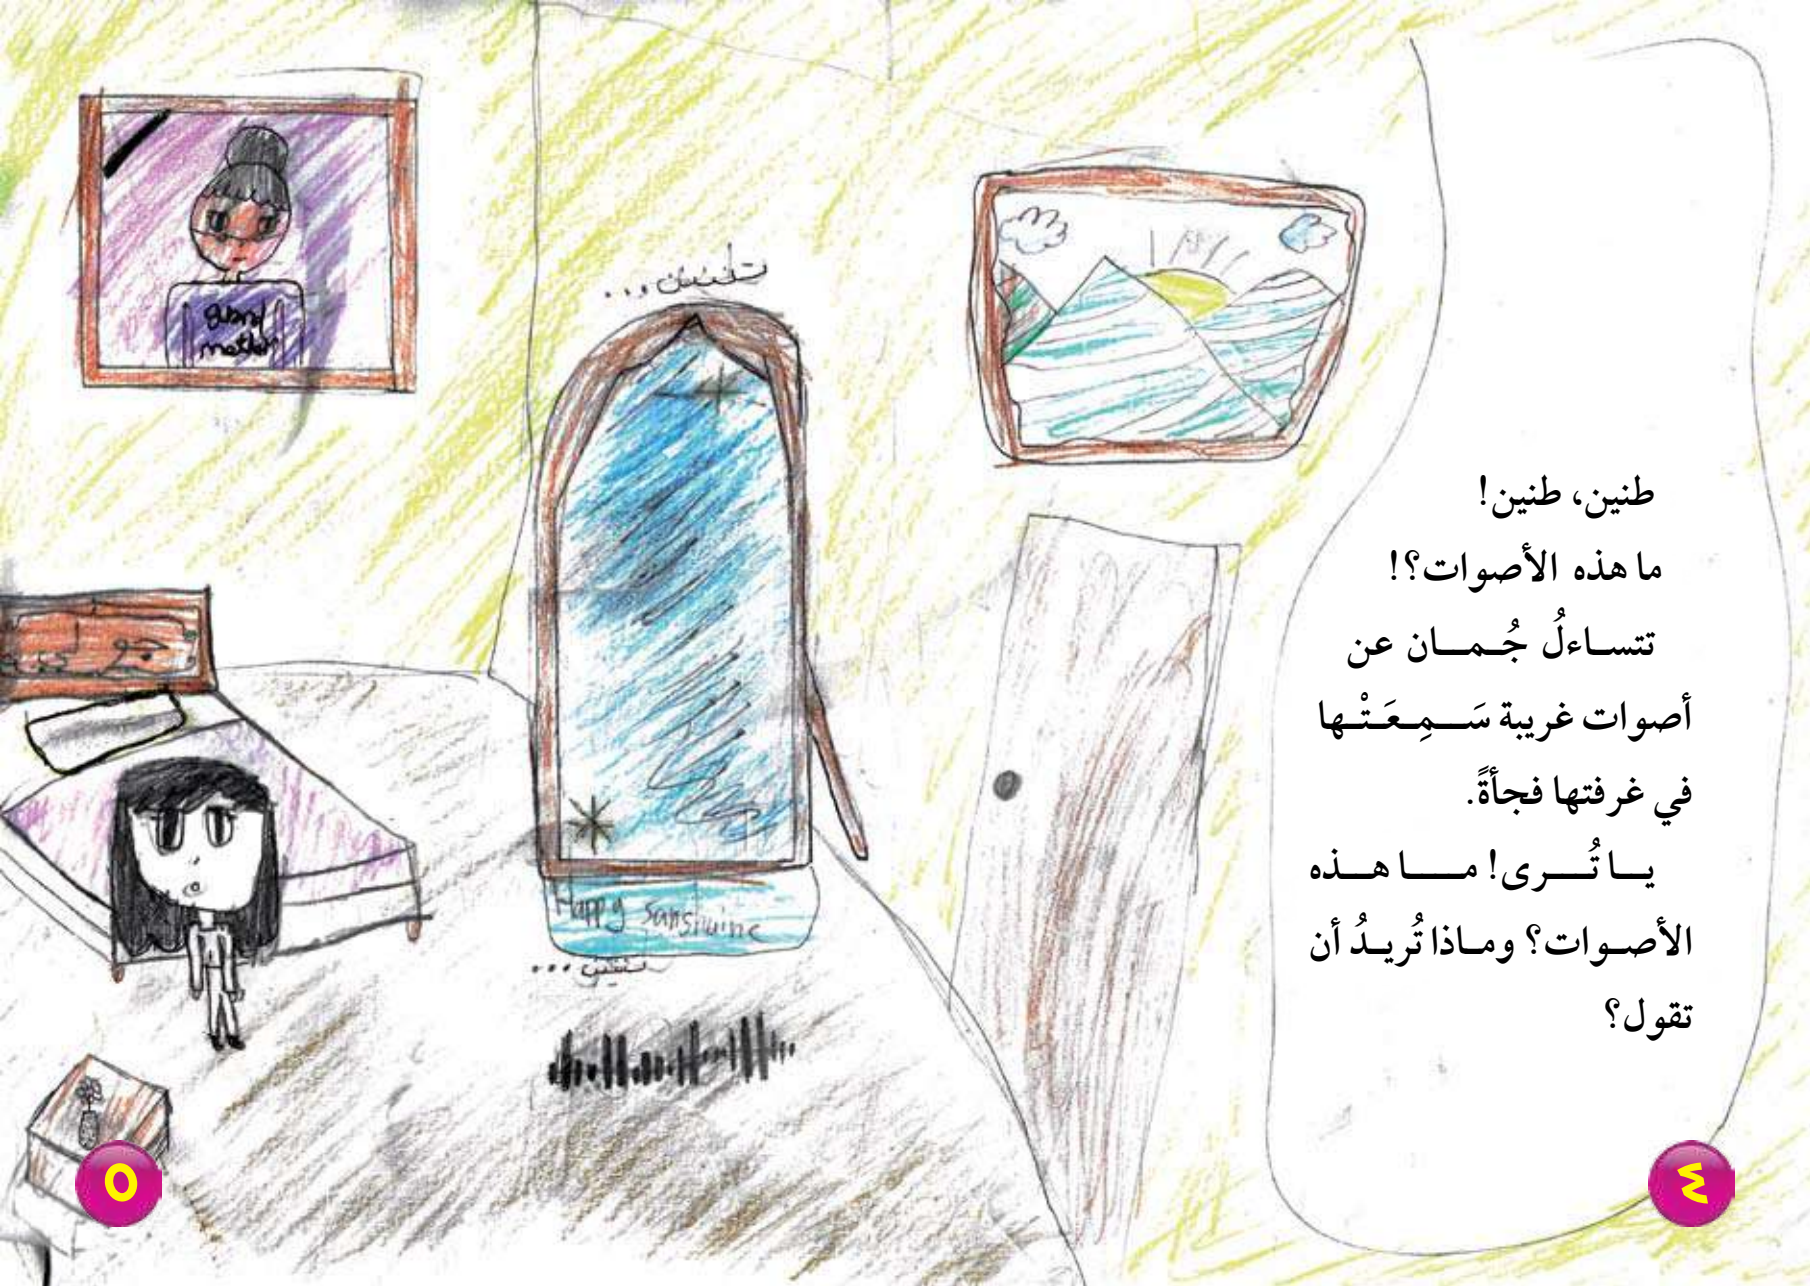 طنين، طنين!
ما هذه الأصوات؟!
تتساءلُ جُمان عن
أصوات غريبة سَمِعَتْها
في غرفتها فجأةً.
يا تُرى! ما هذه
الأصوات؟ وماذا تُريدُ أن
تقول؟
٤
Happy Sunshuine
٥